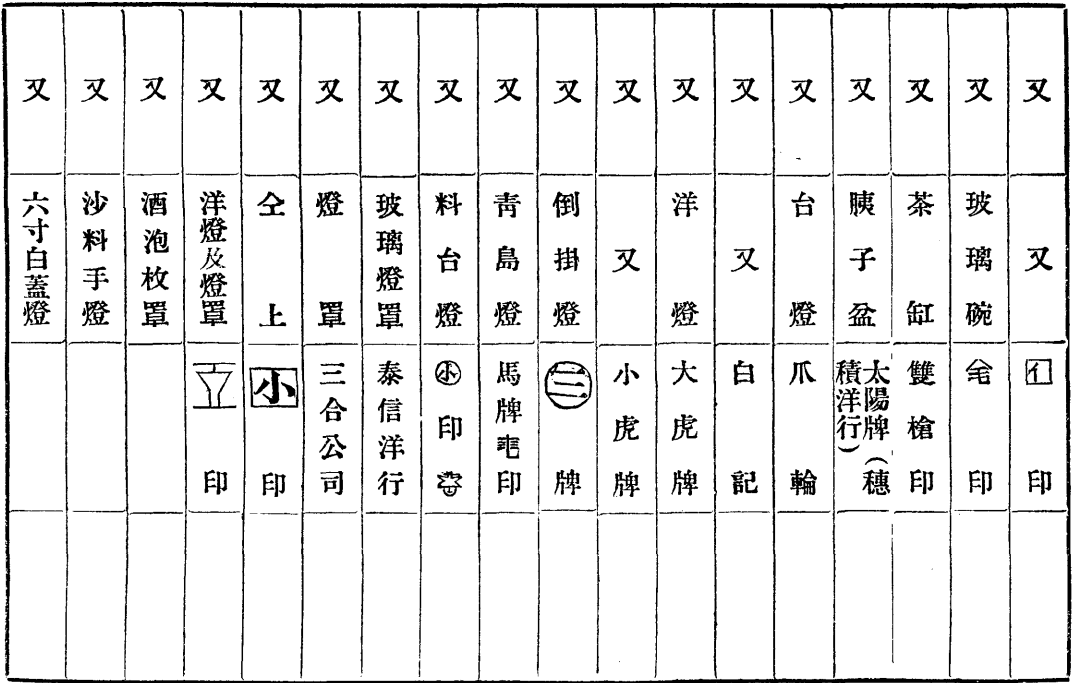 又 又 印
又 玻璃碗 印
又 茶缸 雙槍印
又 胰子盆 太陽牌（穗積洋行）
又 台燈 爪輪
又 又 白記
又 洋燈 大虎牌
又 又 小虎牌
又 倒掛燈 牌
又 靑島燈 馬牌印
又 料台燈 小印
又 玻璃燈罩 泰信洋行
又 燈罩 三合公司
又 仝上 小印
又 洋燈及燈罩 印
又 酒泡枚罩
又 沙料手燈
又 六寸白蓋燈